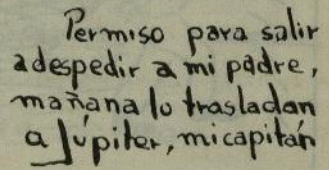 Permiso para salir
a despedir a mi padre,
mañana lo trasladan
a Júpiter, mi capitán